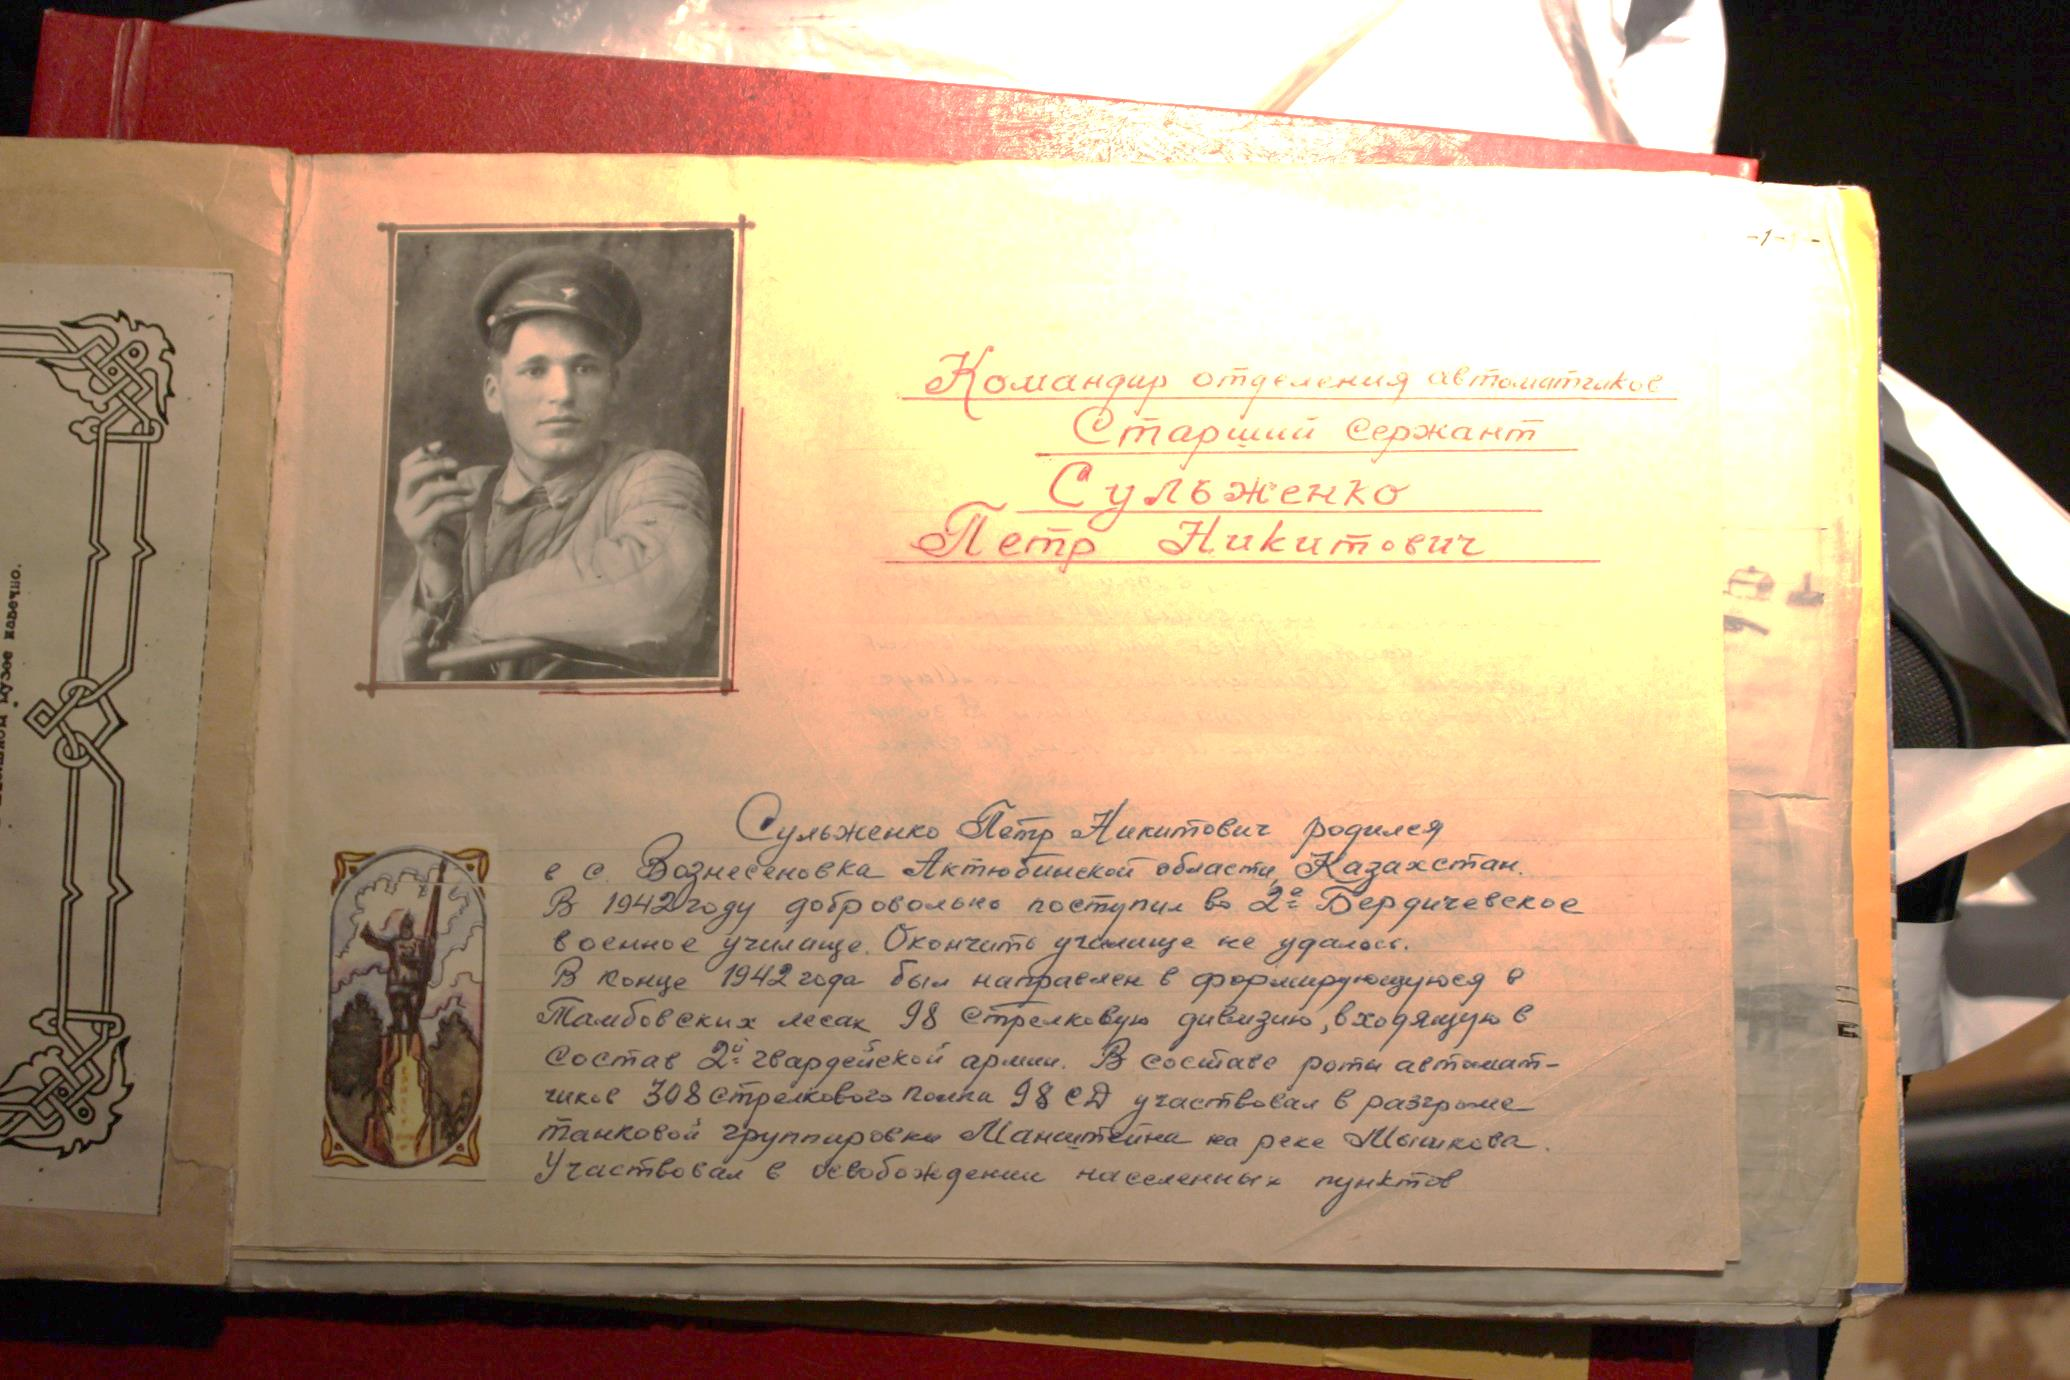 музее навечно.
-1-
Командир отделения автоматчиков
Старший сержант
Сульженко
Петр Никитович
Сульженко Петр Никитович родился
в с. Вознесеновка Актюбинской области, Казахстан.
В 1942 году добровольно поступил во 2ое Бердичевское
военное училище. Окончить училище не удалось.
В конце 1942 года был направлен в формирующуюся в
Тамбовских лесах 98 стрелковую дивизию, входящую в
состав 2ой гвардейской армии. В составе роты автомат-
чиков 308 стрелкового полка 98 СД участвовал в разгроме
танковой группировки Манштейна на реке Мышкова.
Участвовал в освобождении населенных пунктов